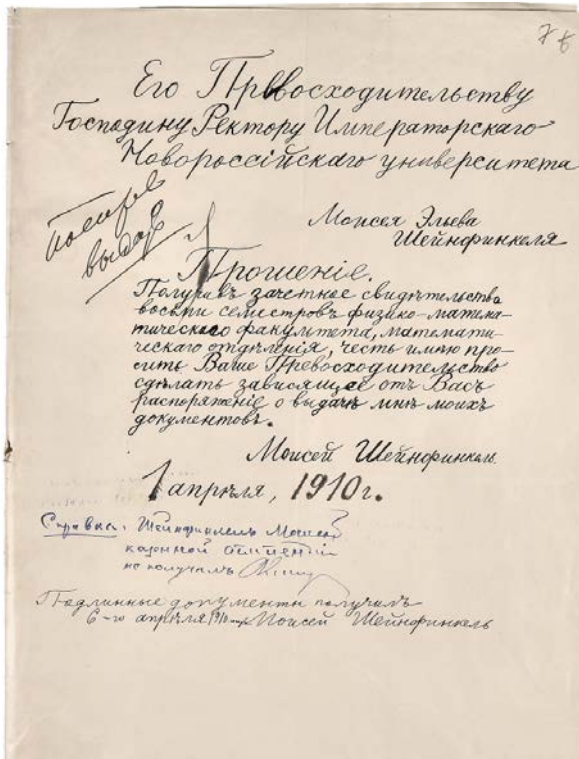 Его Превосходительству
Господину Ректору Императорскаго
Новороссійскаго университета
Моисея Эльева
Шейнфинкеля
выдаче
Прошеніе.
Получивъ зачетное свидѣтельство
восьми семестровъ физико-матема-
тическаго факультета, математи-
ческаго отдѣленія, честь имѣю про-
сить Ваше Превосходительство
сдѣлать зависящее отъ Васъ
распоряженіе о выдачѣ мнѣ моихъ
документовъ.
Моисей Шейнфинкель.
1 апрѣля, 1910 г.
Справка: Шейнфинкель Моисей
казенной стипендіи
не получалъ
Подлинные документы получилъ
6-го апрѣля 1910 Моисей Шейнфинкель